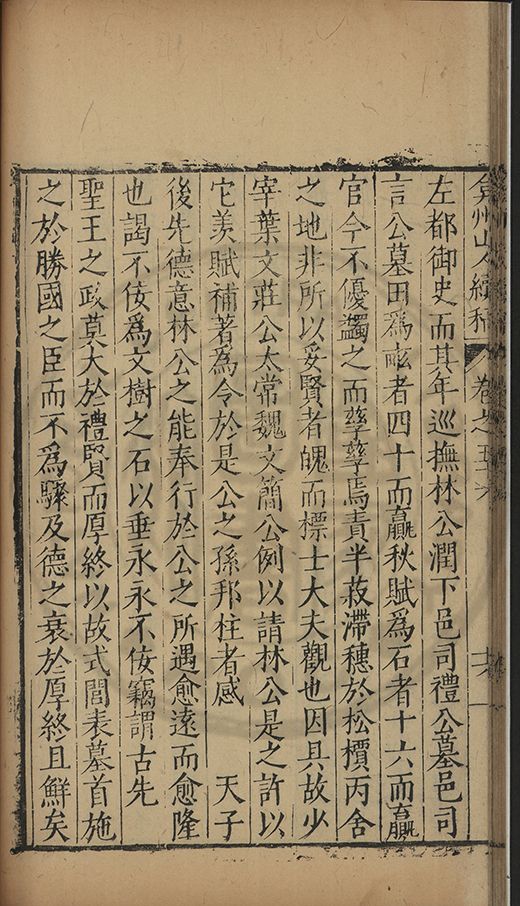 弇州山人續稿 卷之五十六
左都御史而其年巡撫林公潤下邑司禮公墓邑司
言公墓田為畝者四十而贏秋賦為石者十六而贏
官令不優蠲之而孳孳焉責半菽滯穗於松檟丙舍
之地非所以妥賢者魄而標士大夫觀也因具故少
宰葉文莊公太常魏文簡公例以請林公是之許以
它羨賦補著為令於是公之孫邦柱者感 天子
後先德意林公之能奉行於公之所遇愈遠而愈隆
也謁不佞為文樹之石以垂永永不佞竊謂古先
聖王之政莫大於禮賢而厚終以故式閭表墓首施
之於勝國之臣而不為驟及德之衰於厚終且鮮矣